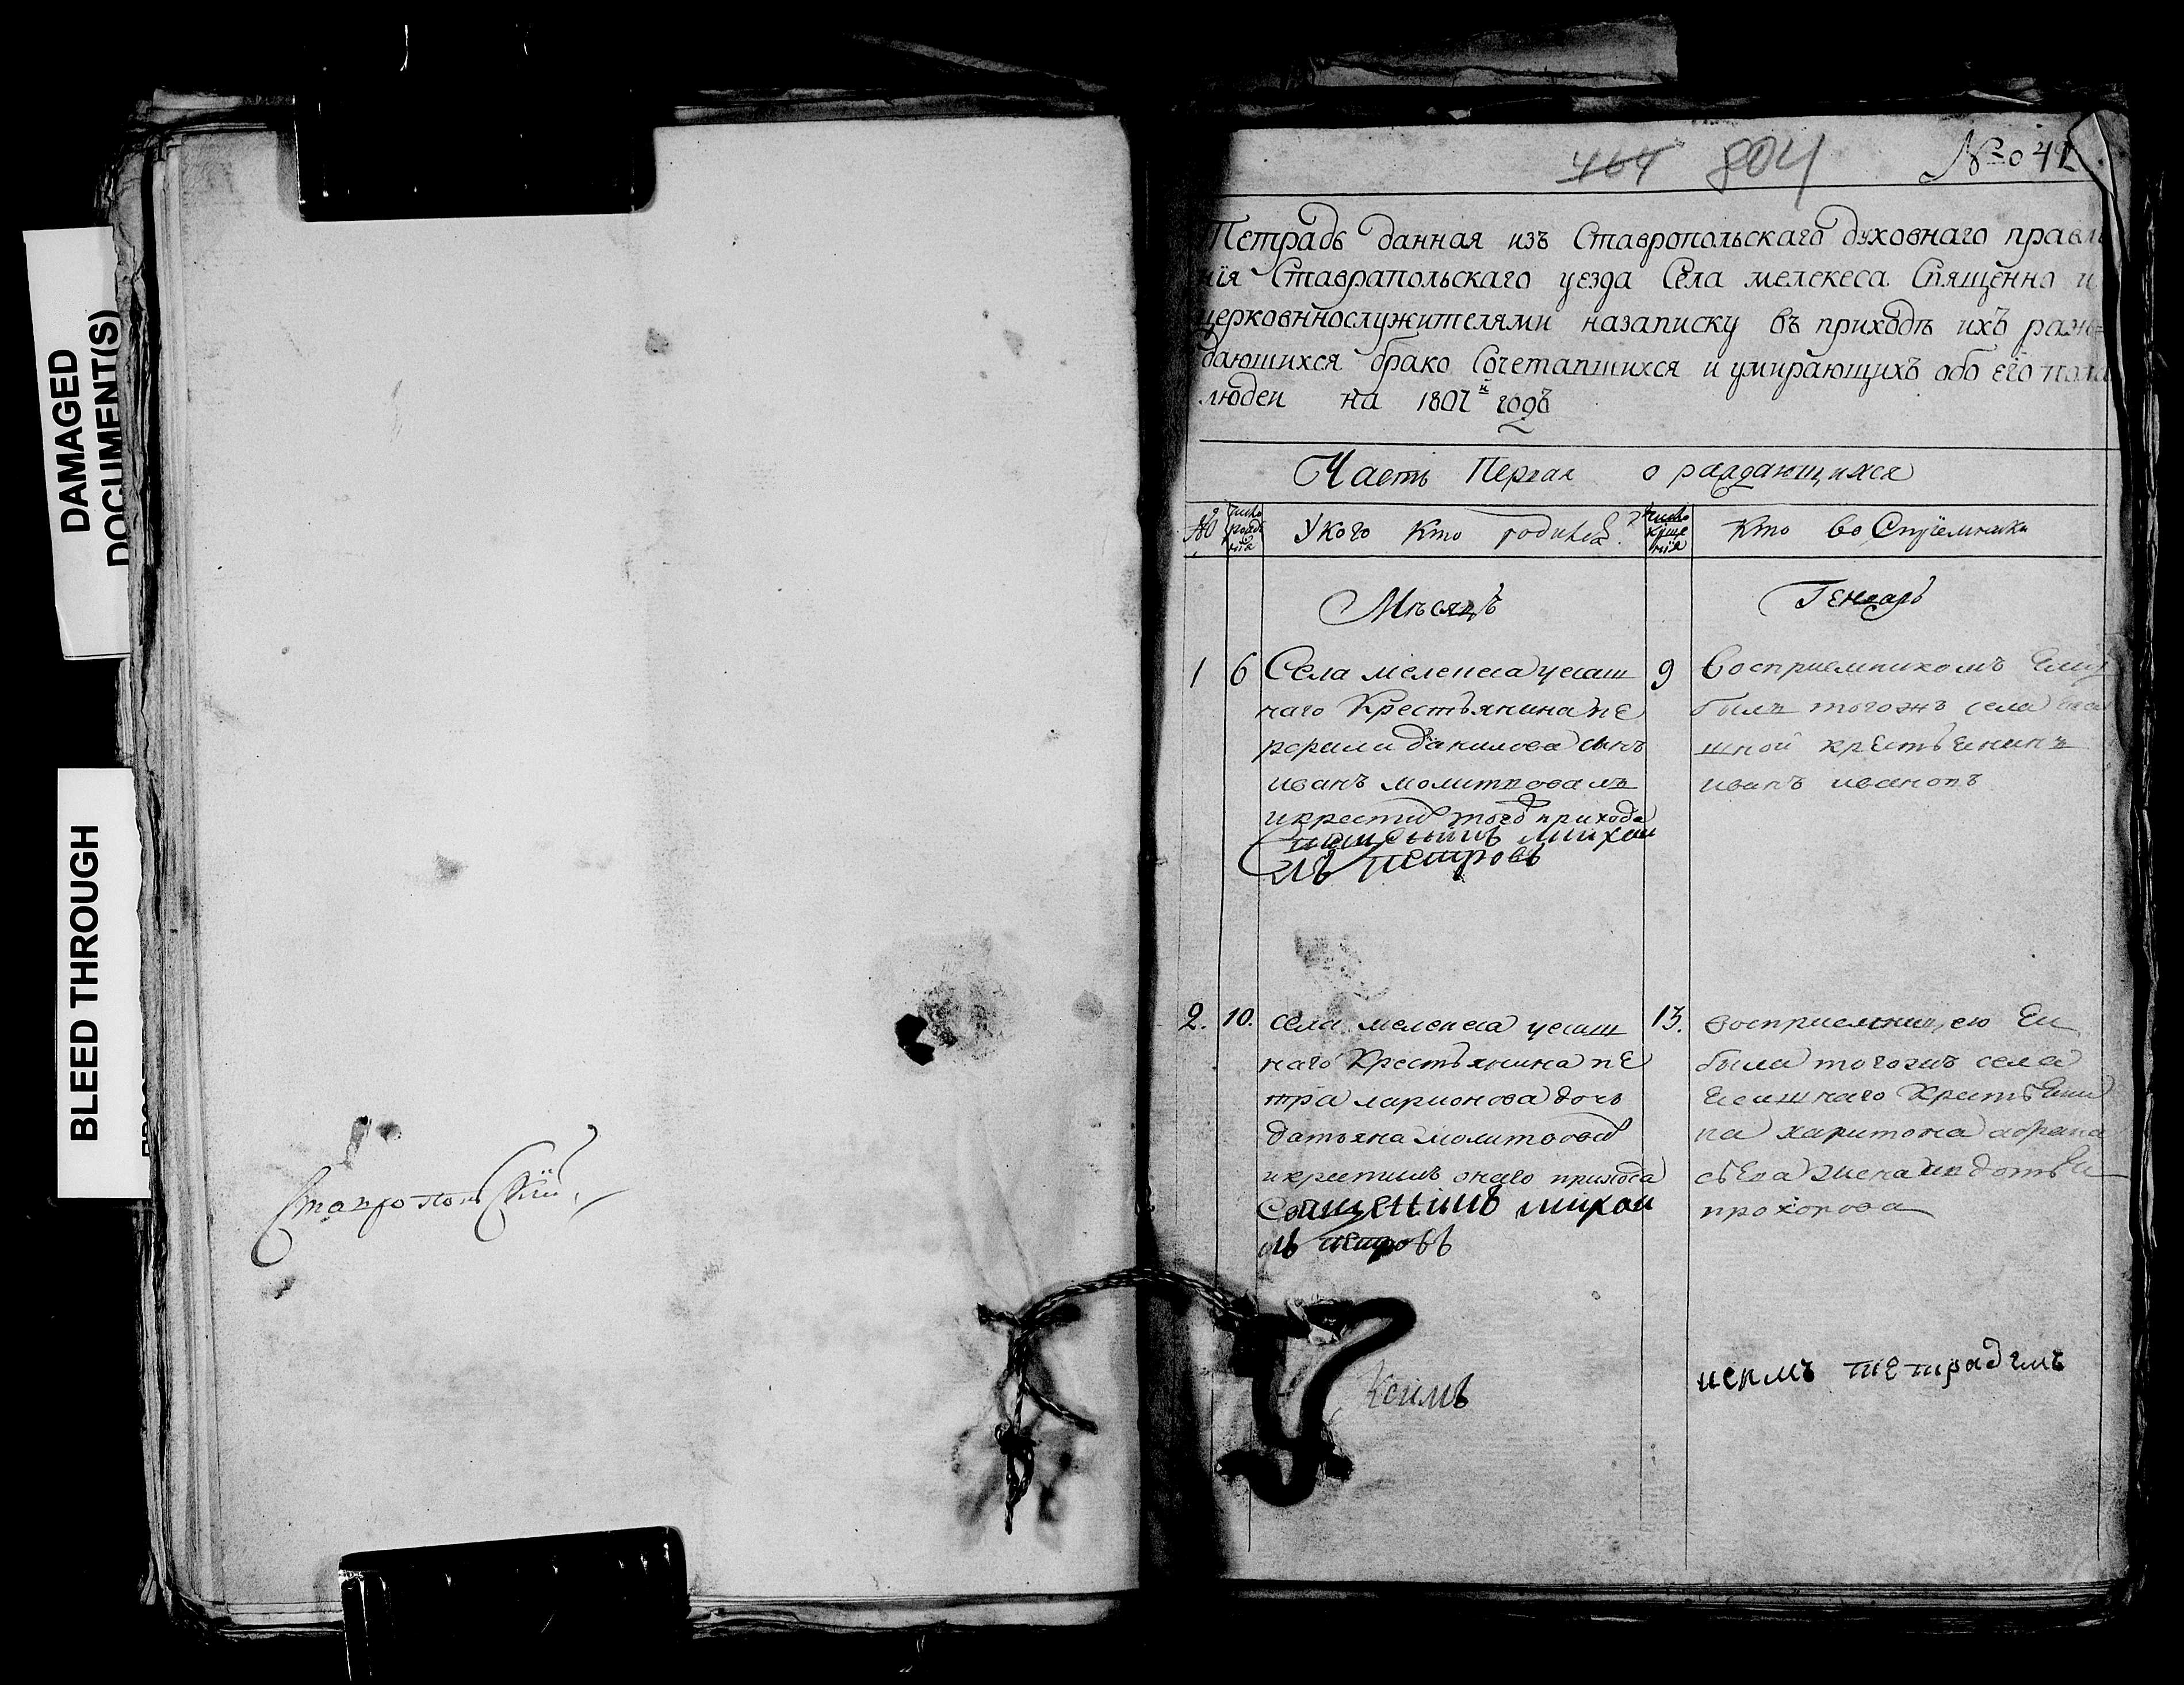 DAMAGED
DOCUMENT(S)
BLEED THROUGH
Ставропольскій
464 804 № 41
Тетрадь данная изъ Ставропольскаго духовнаго правле
нія Ставрапольскаго уезда Села мелекеса Священно и
церковннослужителями назаписку въ приходѣ ихъ раж
дающихся брако Сочетавшихся и умирающихъ обо его пола
людеи на 1807й годъ
Часть Первая о раждающихся
№ число рожде нія У кого кто родился число креще нія Кто воспріемники
Мѣсяцъ Генварь
1 6 Села мелекеса уесаш
наго Крестьянина пе
данилова сынъ
иванъ молитвовалъ
и крестил того прихода
Священникъ михаи
лъ петровъ
9 Восприемникомъ
былъ тогожъ села
шной крестьенинъ
иванъ ивановъ
2. 10. села мелекеса уесаш
наго Крестьянина пе
тра ларионова дочь
татьяна молитвовал
и крестилъ онаго прихода
Священникъ михаи
лъ петровъ
13. восприемницею Еи
была тогожъ села
Есашнаго Крестьени
на харитона
съева жена
прохорова
Ксимъ
тетрадемъ